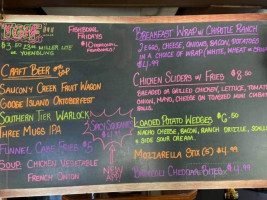 FISHBOWL
FRIDAYS
$3.00 23oz MILLER LITE
or YUENGLING
CRAFT BEER
SAUCONY CREEK FRUIT WAGON
GOOSE ISLAND OKTOBERFEST
SOUTHERN TIER WARLOCK
THREE MUGS IPA
FUNNEL CAKE FRIES $5
SOUP: CHICKEN VEGETABLE
FRENCH ONION
BREAKFAST WRAP w/ CHIPOTLE RANCH
2 EGGS, CHEESE, ONIONS, BACON, POTATOES
IN A CHOICE OF WRAP (WHITE, WHEAT
$4.99
CHICKEN SLIDERS w/ FRIES $8.50
BREADED OR GRILLED CHICKEN, LETTUCE, TOMATO
ONION, MAYO, CHEESE ON TOASTED MINI
LOADED POTATO WEDGES $6.50
NACHO CHEESE, BACON, RANCH DRIZZLE,
& SIDE SOUR CREAM.
MOZZARELLA STIX (5) $4.99
BROCCOLI CHEDDAR BITES $4.99